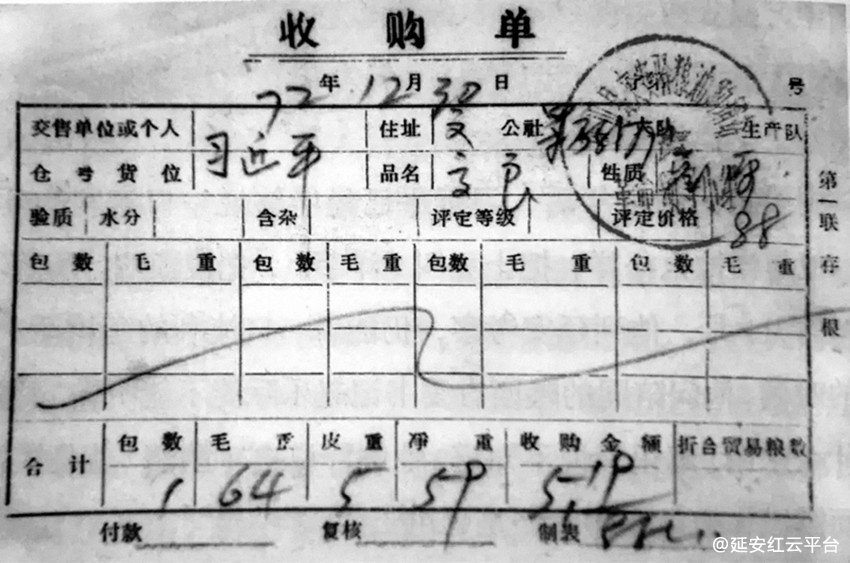 收购单
72年12月30日 号
交售单位或个人 习近平 住址 文 公社 大队 生产队
仓号货位 品名 性质
验质 水分 含杂 评定等级 评定价格 88
包数 毛重 包数 毛重 包数 毛重 包数 毛重
合计 包数 毛重 皮重 净重 收购金额 折合贸易粮数
1 64 5 59 5.19
付款 复核 制表
第一联存根
@延安红云平台